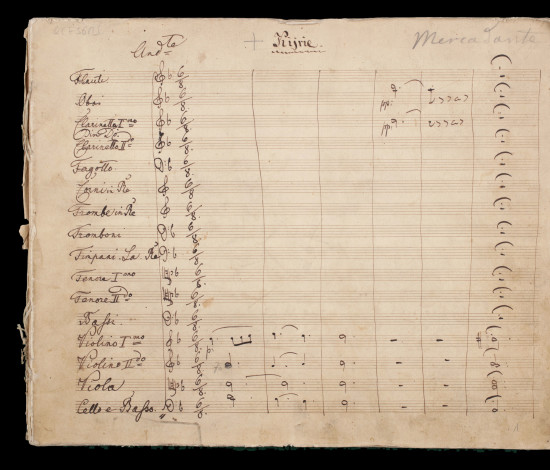 Andte
+ Kijrie.
Mercadante
Flauti
Oboi
Clarinetto Imo
Clarinetto IIdo
Fagotto
Corni in Re
Trombe in Re
Tromboni
Timpani. La Re
Tenore Imo
Tenore IIdo
Bassi
Violino Imo
Violino IIdo
Viola
Cello e Basso.